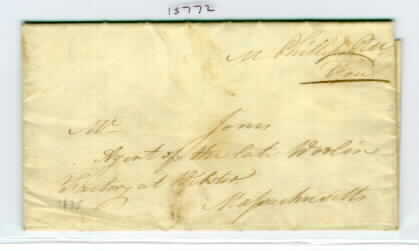 15772
M Phillips
Mr Jones
Agent of the late Woolen
Factory at Webster
Massachusetts
1835